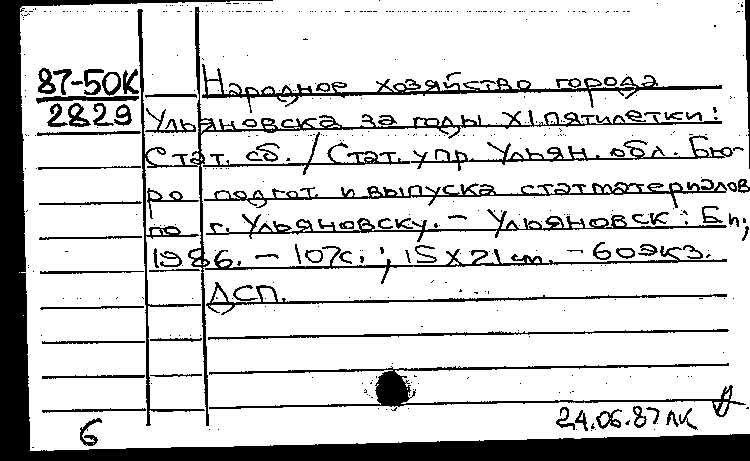 87-50К
2829
Народное хозяйство города
Ульяновска за годы XI пятилетки:
Стат. сб. / Стат. упр. Ульян. обл. Бю-
ро подгот. и выпуска статматериалов
по г. Ульяновску. – Ульяновск : Б.и.,
1986. – 107с. ; 15 X 21 см. – 60экз.
ДСП.
6
24.06.87 ЛК